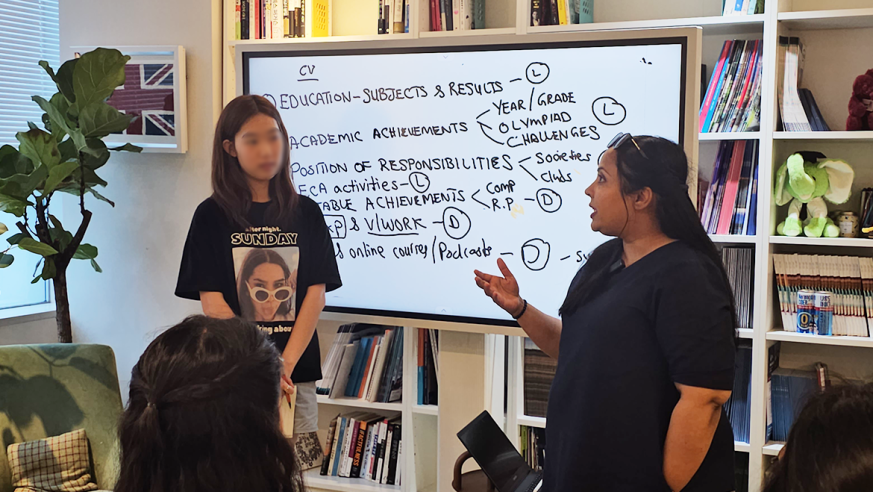 CV
EDUCATION - SUBJECTS & RESULTS - L
ACADEMIC ACHIEVEMENTS
YEAR/GRADE
OLYMPIAD
CHALLENGES
L
POSITION OF RESPONSIBILITIES
Societies
Clubs
ECA activities - L
ACHIEVEMENTS
Comp
R.P
D
& V/WORK - D
online courses/Podcasts - D -
SUNDAY